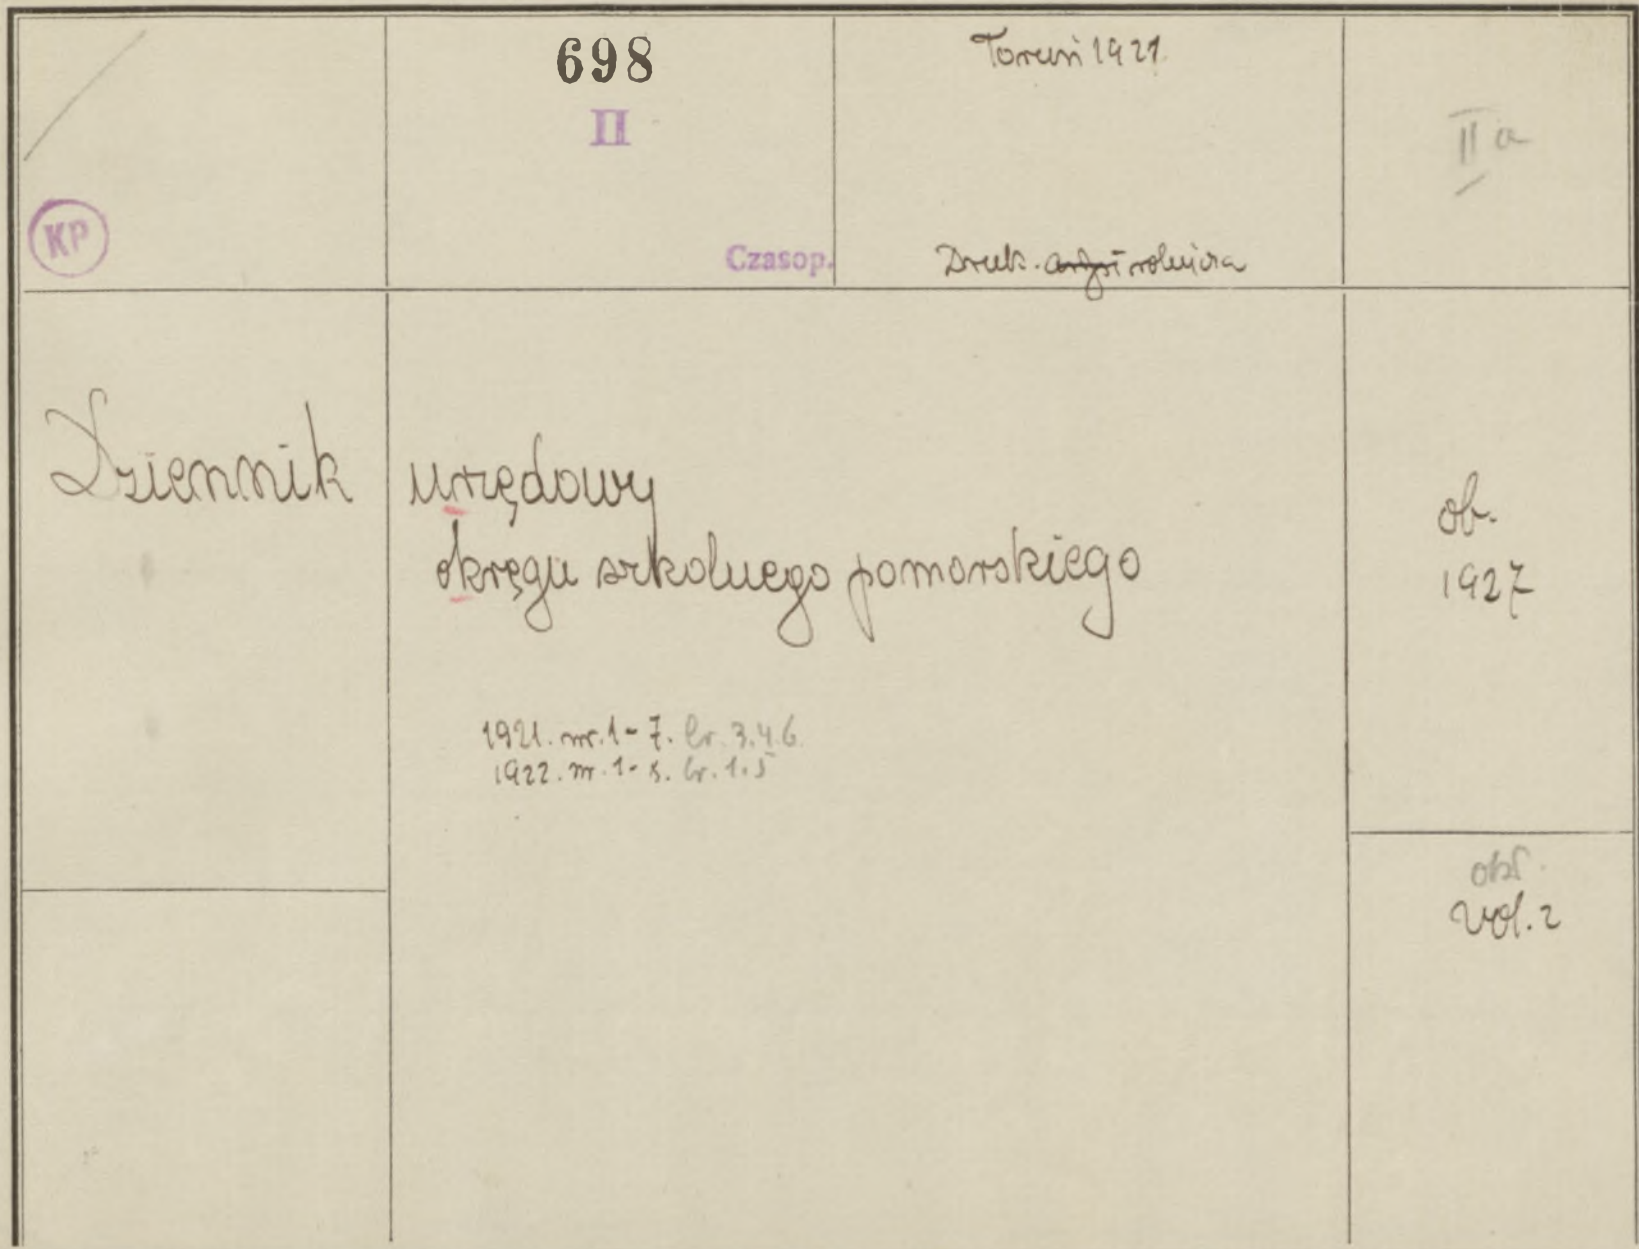 698
II
KP
Czasop.
Toruń 1921.
Druk. rolnicza
II a
Dziennik urzędowy
okręgu szkolnego pomorskiego
1921. nr. 1-7. br. 3.4.6.
1922. nr. 1-5. br. 1.5
ob.
1927
vol. 2